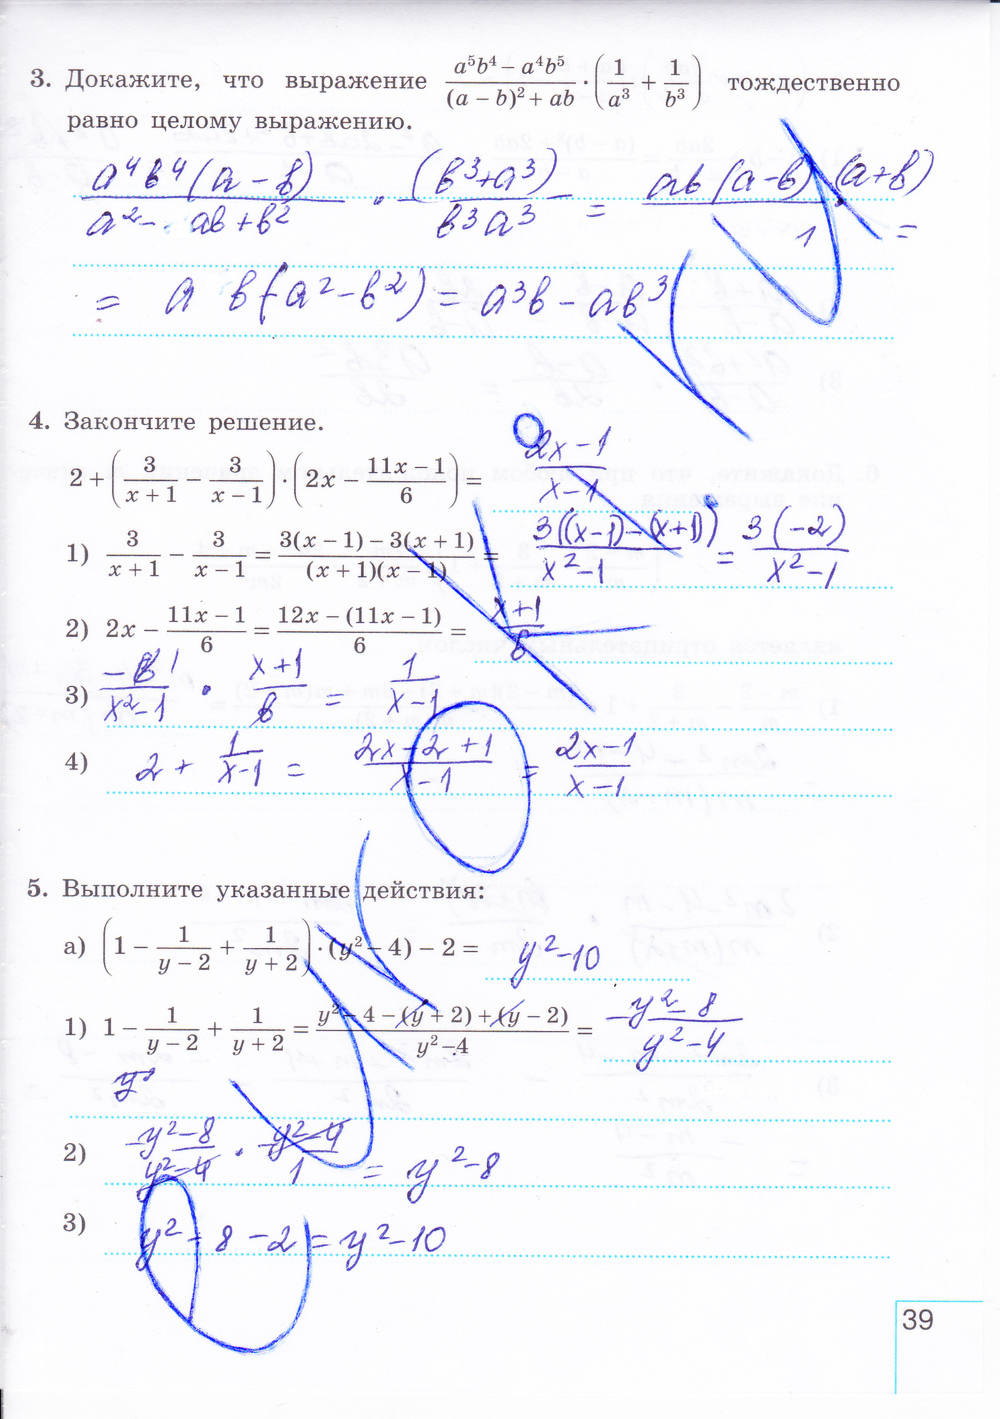 3. Докажите, что выражение (a⁵b⁴ − a⁴b⁵)/((a − b)² + ab) · (1/a³ + 1/b³) тождественно
равно целому выражению.
a⁴b⁴(a − b)/(a² − ab + b²) · (b³+a³)/(b³a³) = ab(a−b)(a+b)/1 =
= a b(a²−b²) = a³b − ab³
4. Закончите решение.
2 + (3/(x + 1) − 3/(x − 1)) · (2x − (11x − 1)/6) = (2x−1)/(x−1)
1) 3/(x + 1) − 3/(x − 1) = (3(x − 1) − 3(x + 1))/((x + 1)(x − 1)) = 3((x−1)−(x+1))/(x²−1) = 3(−2)/(x²−1)
2) 2x − (11x − 1)/6 = (12x − (11x − 1))/6 = (x+1)/6
3) −6/(x²−1) · (x+1)/6 = 1/(x−1)
4) 2 + 1/(x−1) = (2x−2+1)/(x−1) = (2x−1)/(x−1)
5. Выполните указанные действия:
а) (1 − 1/(y − 2) + 1/(y + 2)) · (y² − 4) − 2 = y²−10
1) 1 − 1/(y − 2) + 1/(y + 2) = (y² − 4 − (y + 2) + (y − 2))/(y² − 4) = (y²−8)/(y²−4)
2) (y²−8)/(y²−4) · (y²−4)/1 = y²−8
3) y² − 8 − 2 = y²−10
39